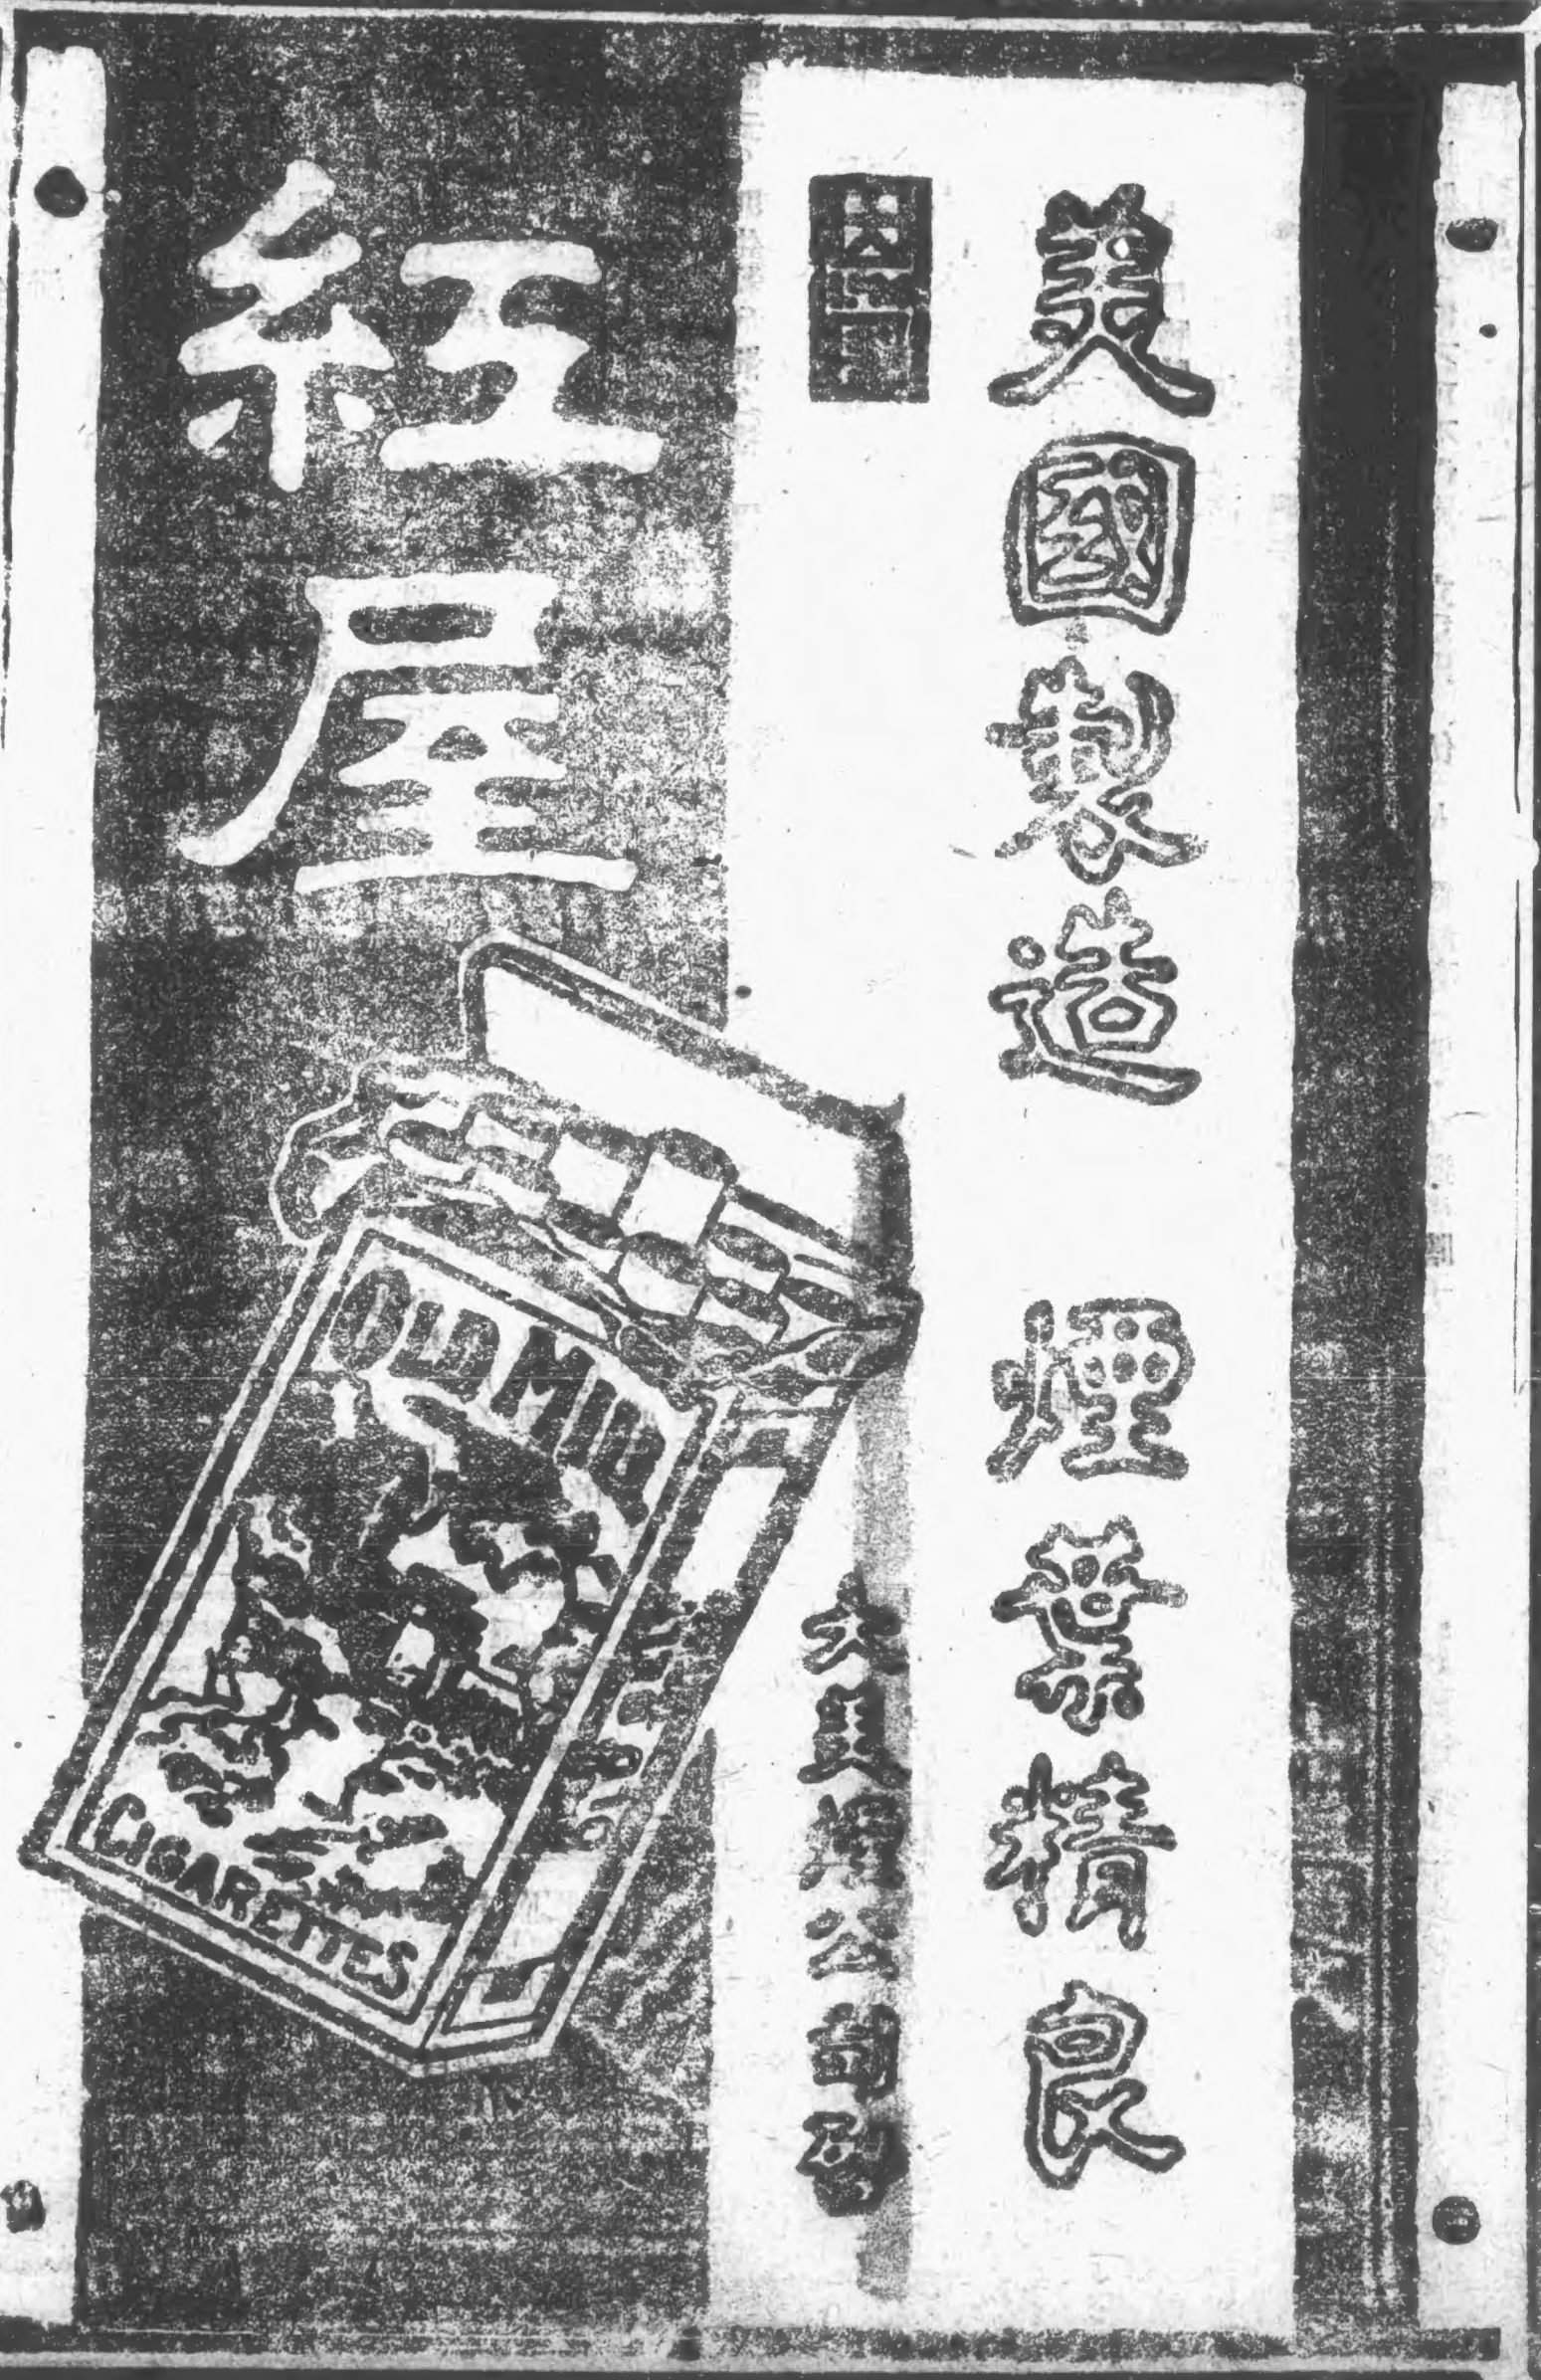 美國製造 煙葉精良
大美煙公司啟
紅屋
OLD MILL
CIGARETTES